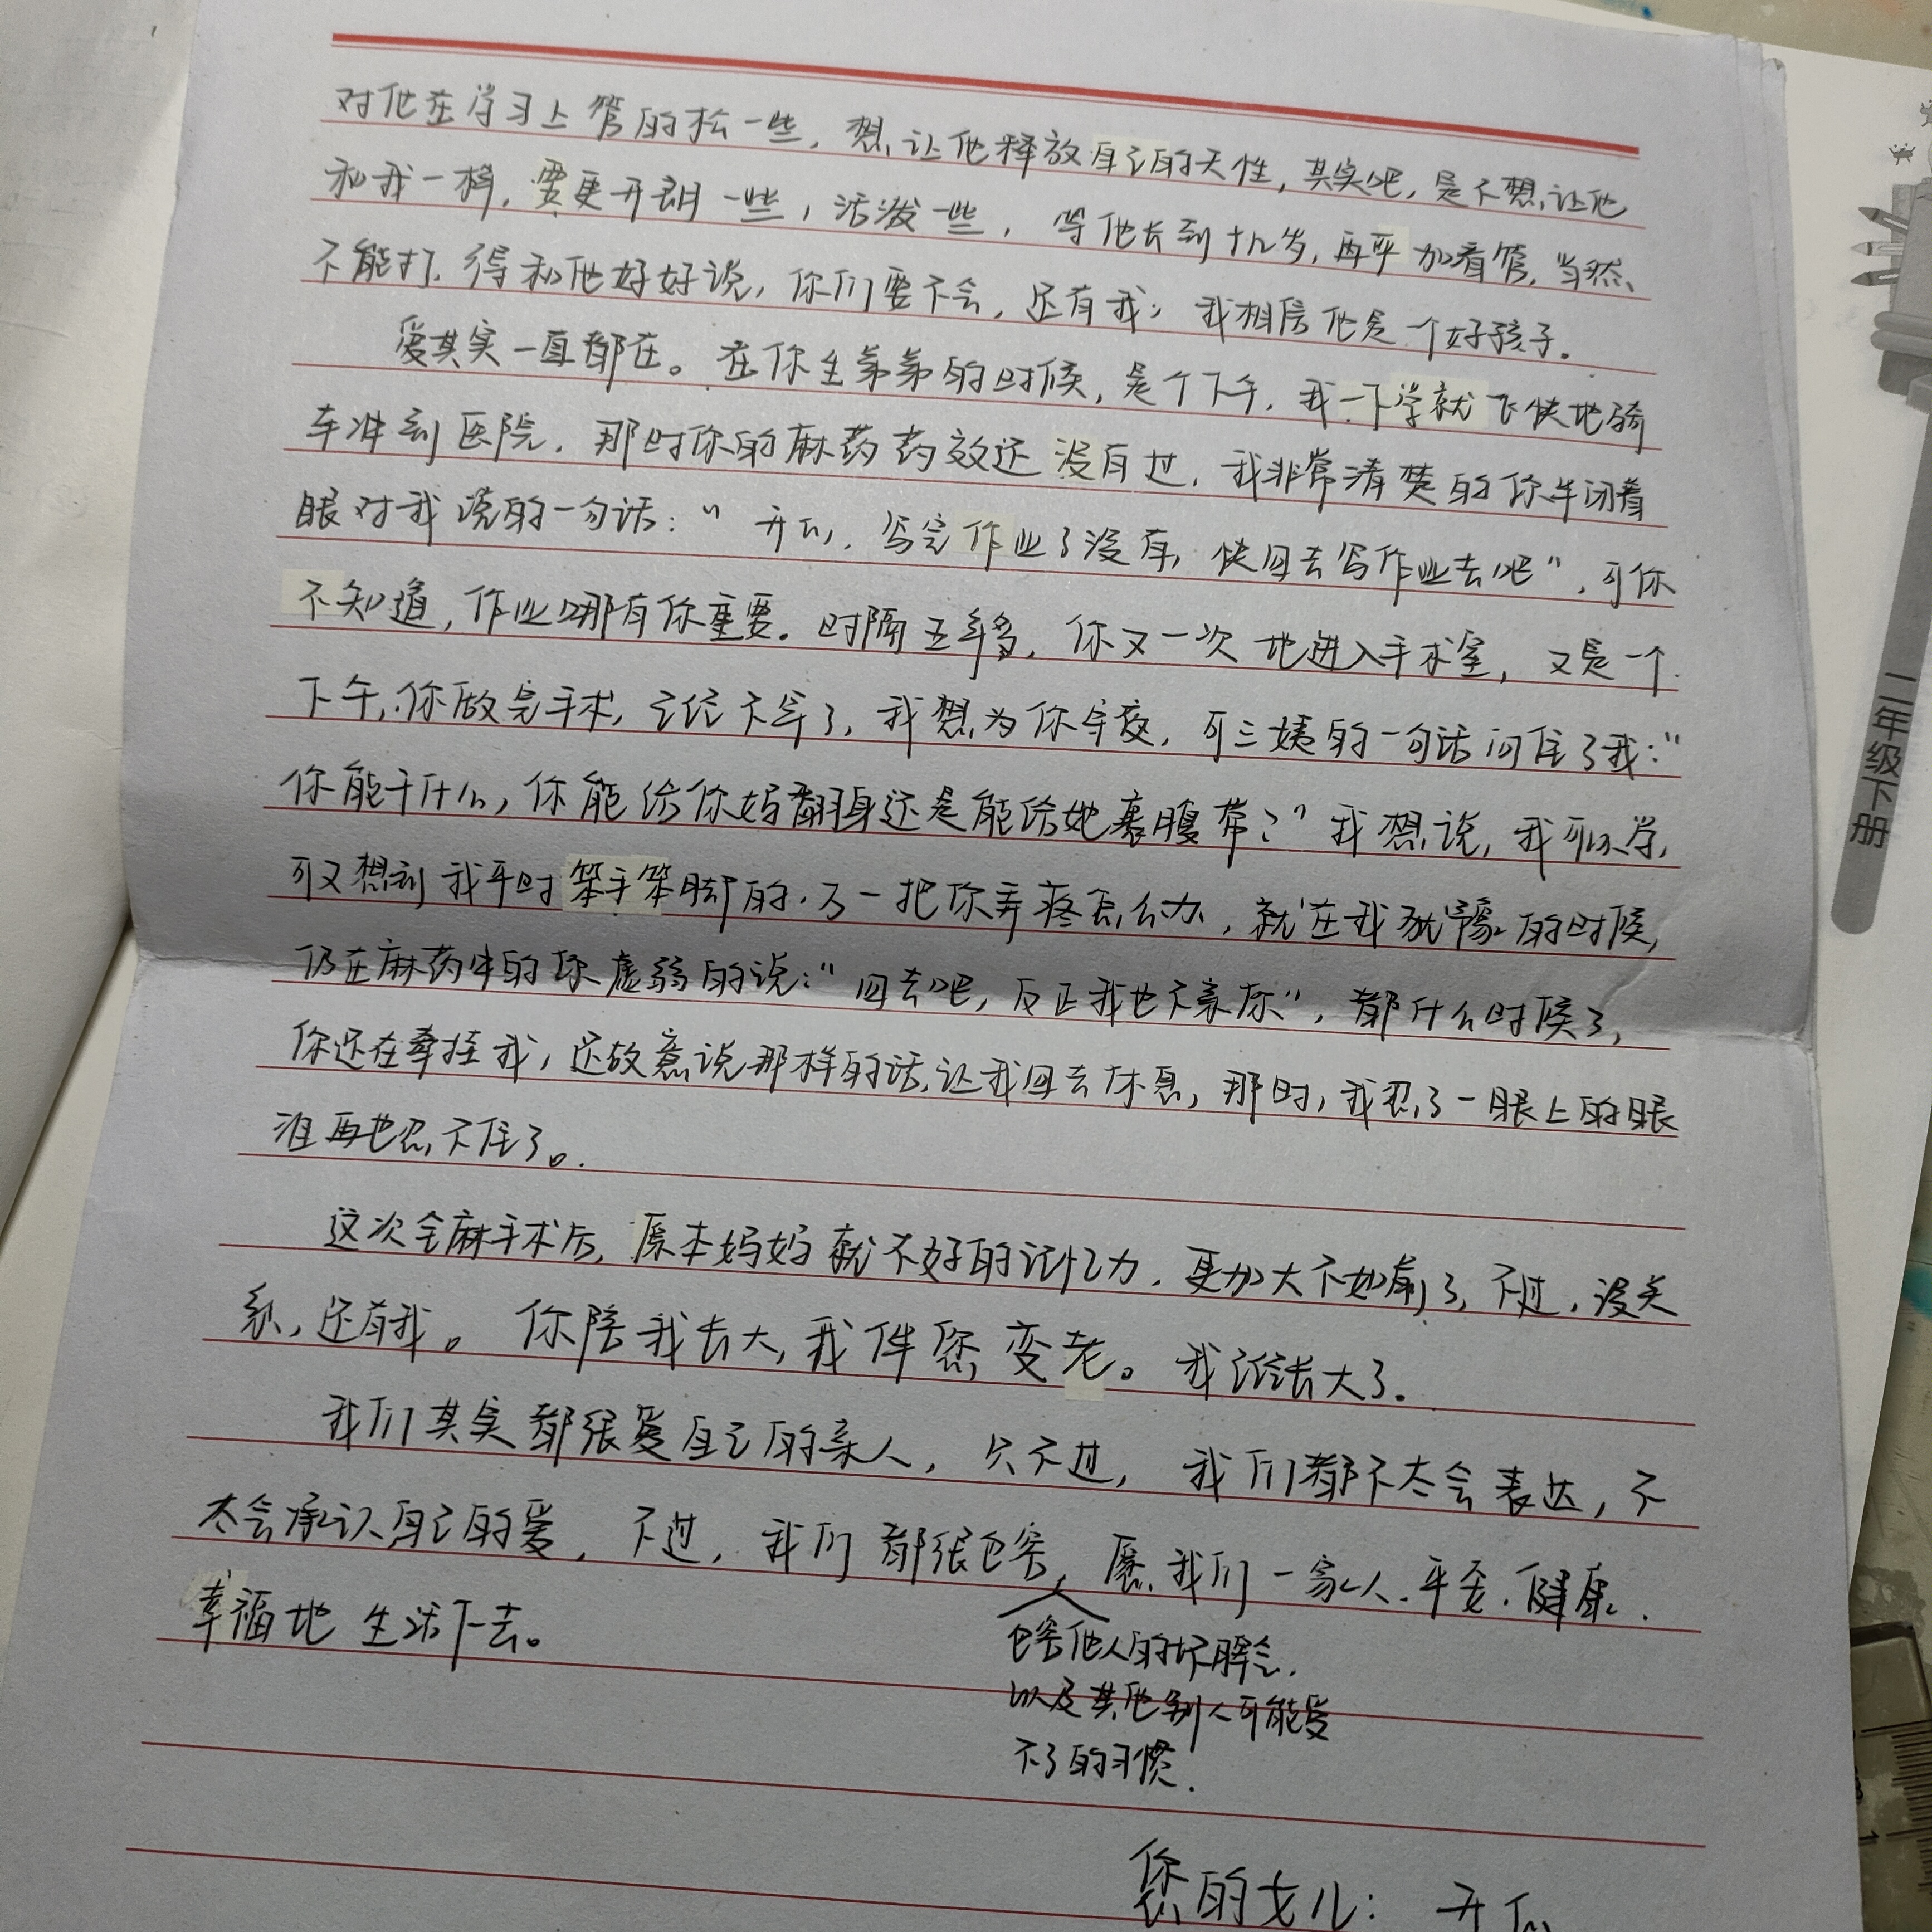 对他在学习上管的松一些，想让他释放自己的天性，其实吧，是不想让他
和我一样，要更开朗一些，活泼一些，等他长到十几岁，再严加看管，当然
不能打，得和他好好说，你们要不会，还有我，我相信他是一个好孩子。
爱其实一直都在。在你生弟弟的时候，是个下午，我一下学就飞快地骑
车冲到医院，那时你的麻药药效还没有过，我非常清楚的你半闭着
眼对我说的一句话：“ 写完作业了没有，快回去写作业去吧”，可你
不知道，作业哪有你重要。时隔五年多，你又一次地进入手术室，又是一个
下午，你做完手术，已经不早了，我想为你守夜，可三姨的一句话问住了我：“
你能干什么，你能给你妈翻身还是能给她裹腹带？”我想说，我可以学，
可又想到我平时笨手笨脚的，万一把你弄疼怎么办，就在我犹豫的时候，
仍在麻药中的你虚弱的说：“回去吧，反正我也不亲你”，都什么时候了，
你还在牵挂我，还故意说那样的话，让我回去休息，那时，我忍了一眼上的眼
泪再也忍不住了。
这次全麻手术后，原本妈妈就不好的记忆力，更加大不如前了，不过，没关
系，还有我。你陪我长大，我伴您变老。我已经长大了。
我们其实都很爱自己的亲人，只不过，我们都不太会表达，不
太会承认自己的爱，不过，我们都很包容，愿我们一家人，平安，健康，
包容他人的坏脾气，
以及其他别人可能受
不了的习惯，
幸福地生活下去。
您的女儿：
二年级下册